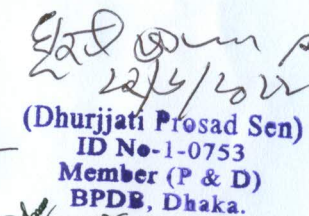 22/6/2022
(Dhurjjati Prosad Sen)
ID No-1-0753
Member (P & D)
BPDB, Dhaka.